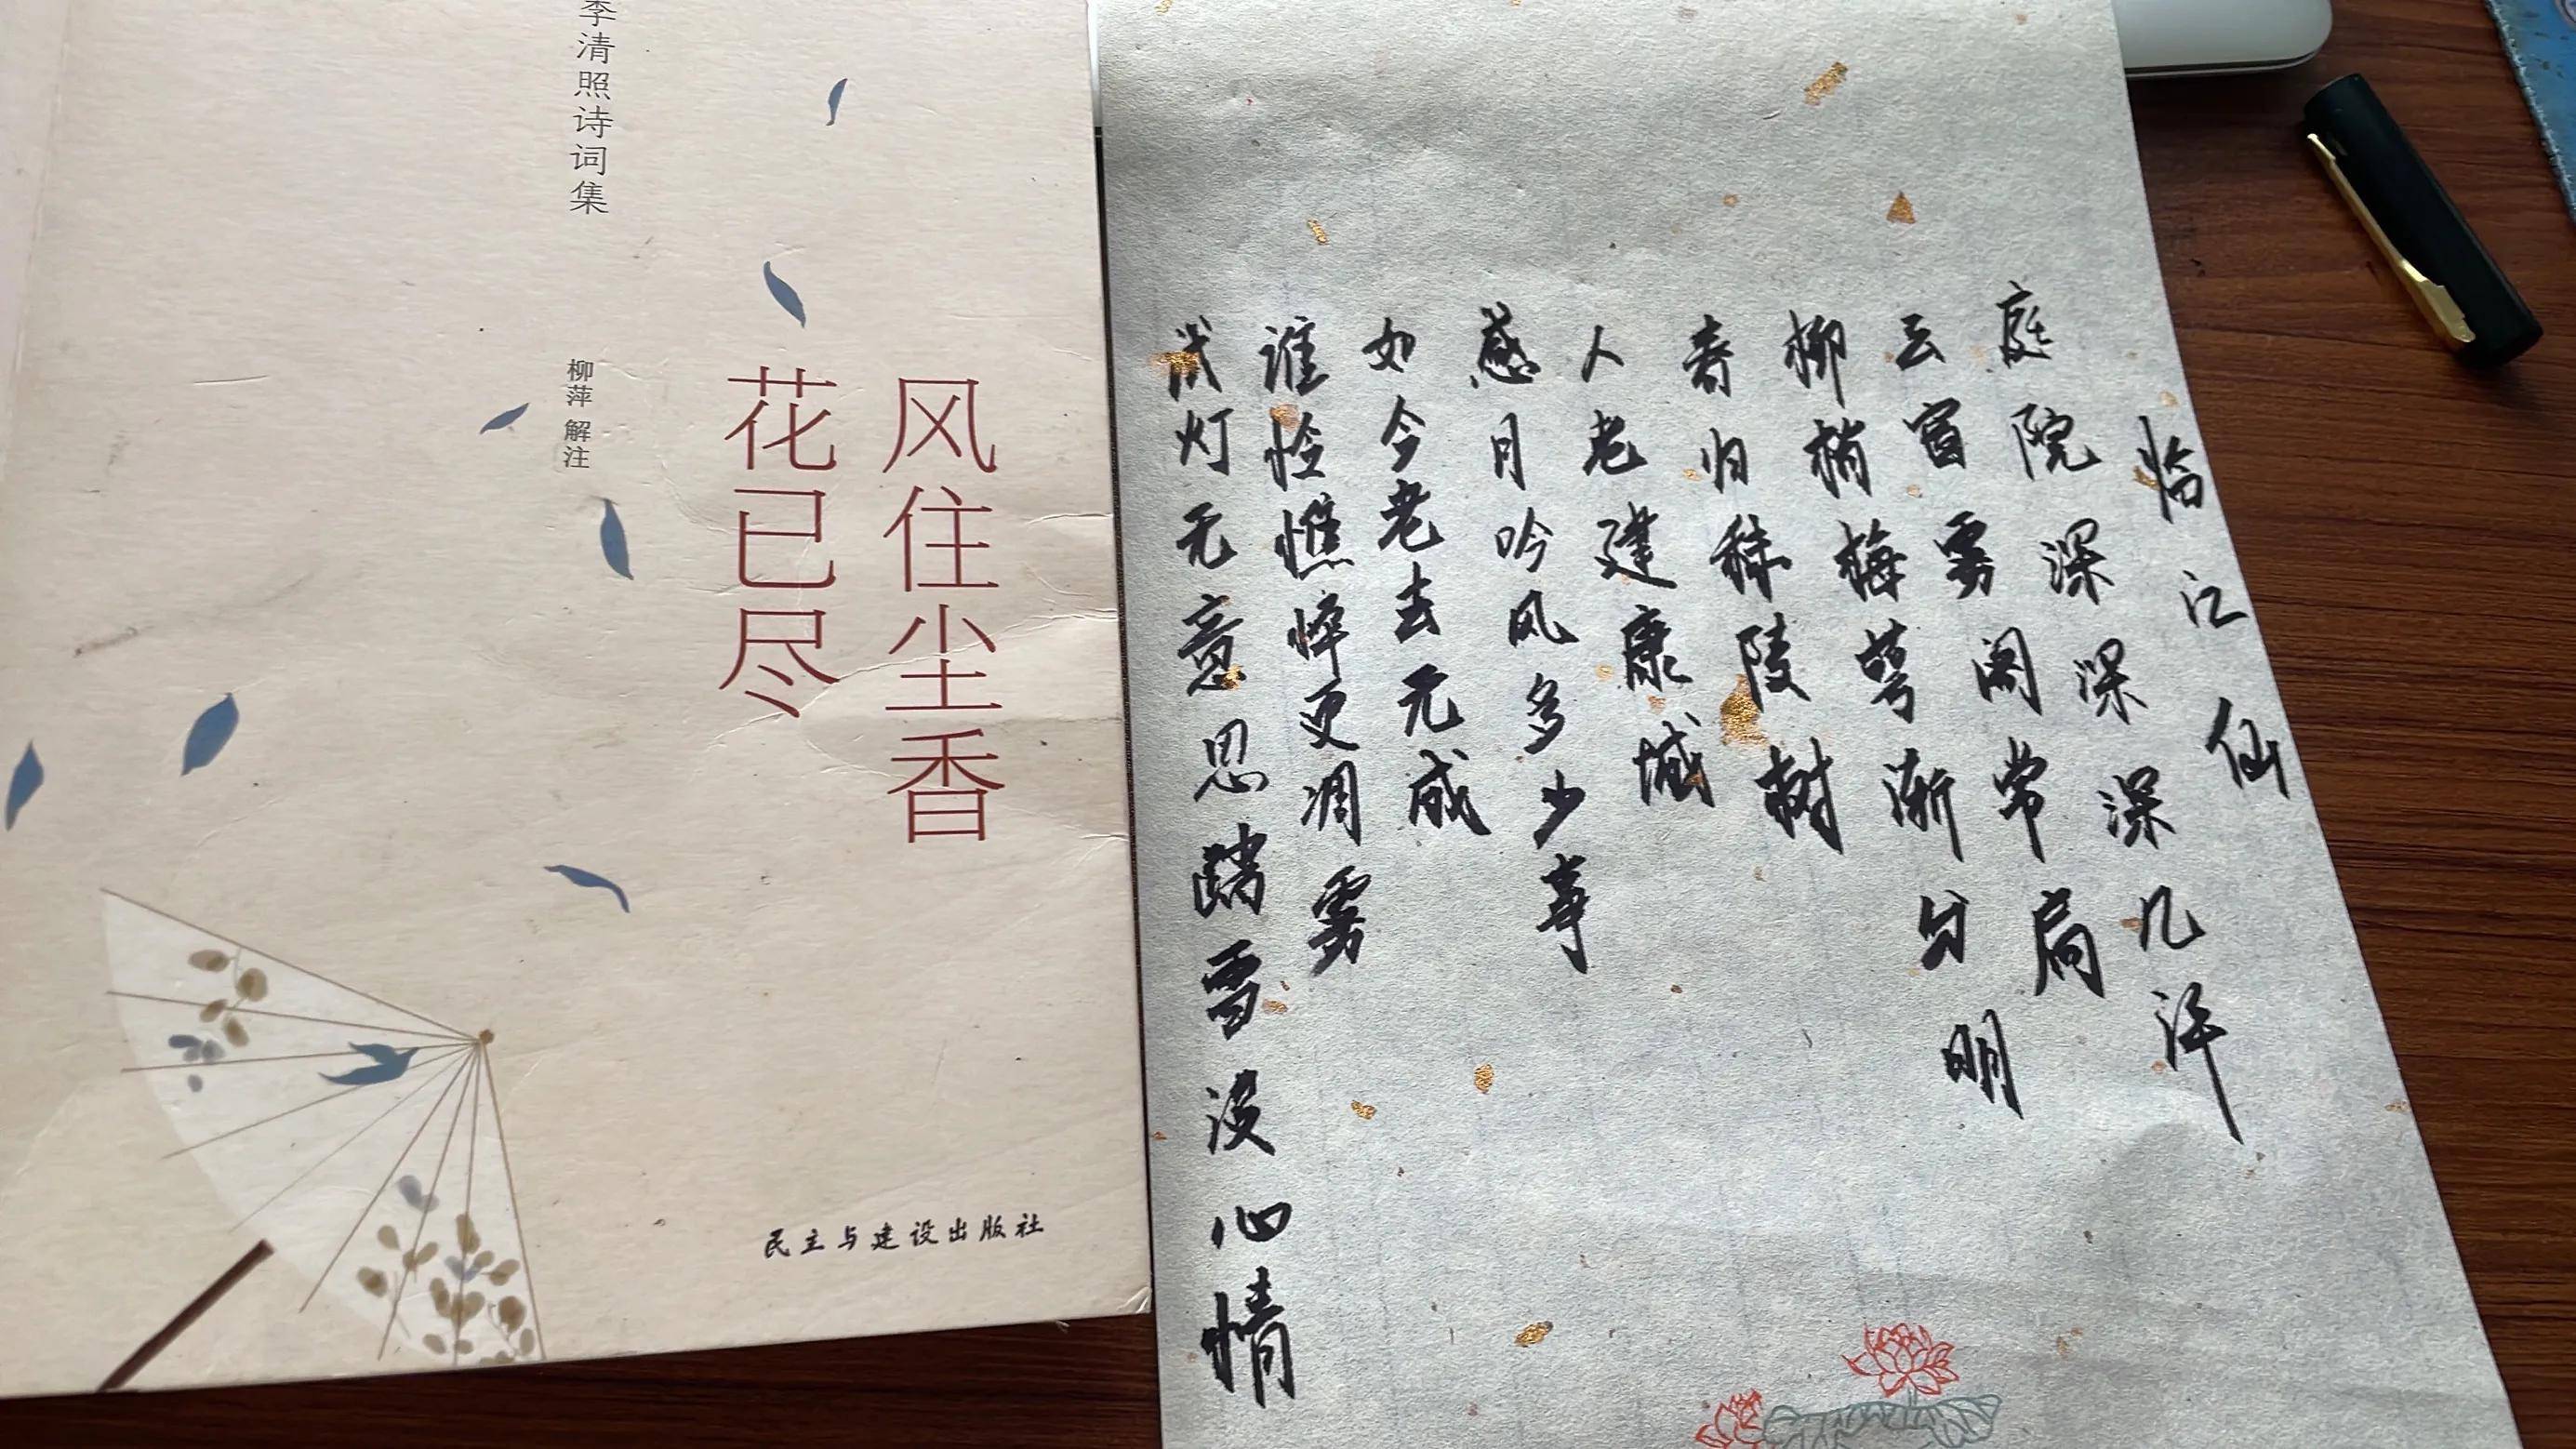 李清照诗词集
风住尘香
花已尽
柳萍 解注
民主与建设出版社
临江仙
庭院深深深几许
云窗雾阁常扃
柳梢梅萼渐分明
春归秣陵树
人老建康城
感月吟风多少事
如今老去无成
谁怜憔悴更凋零
试灯无意思踏雪没心情